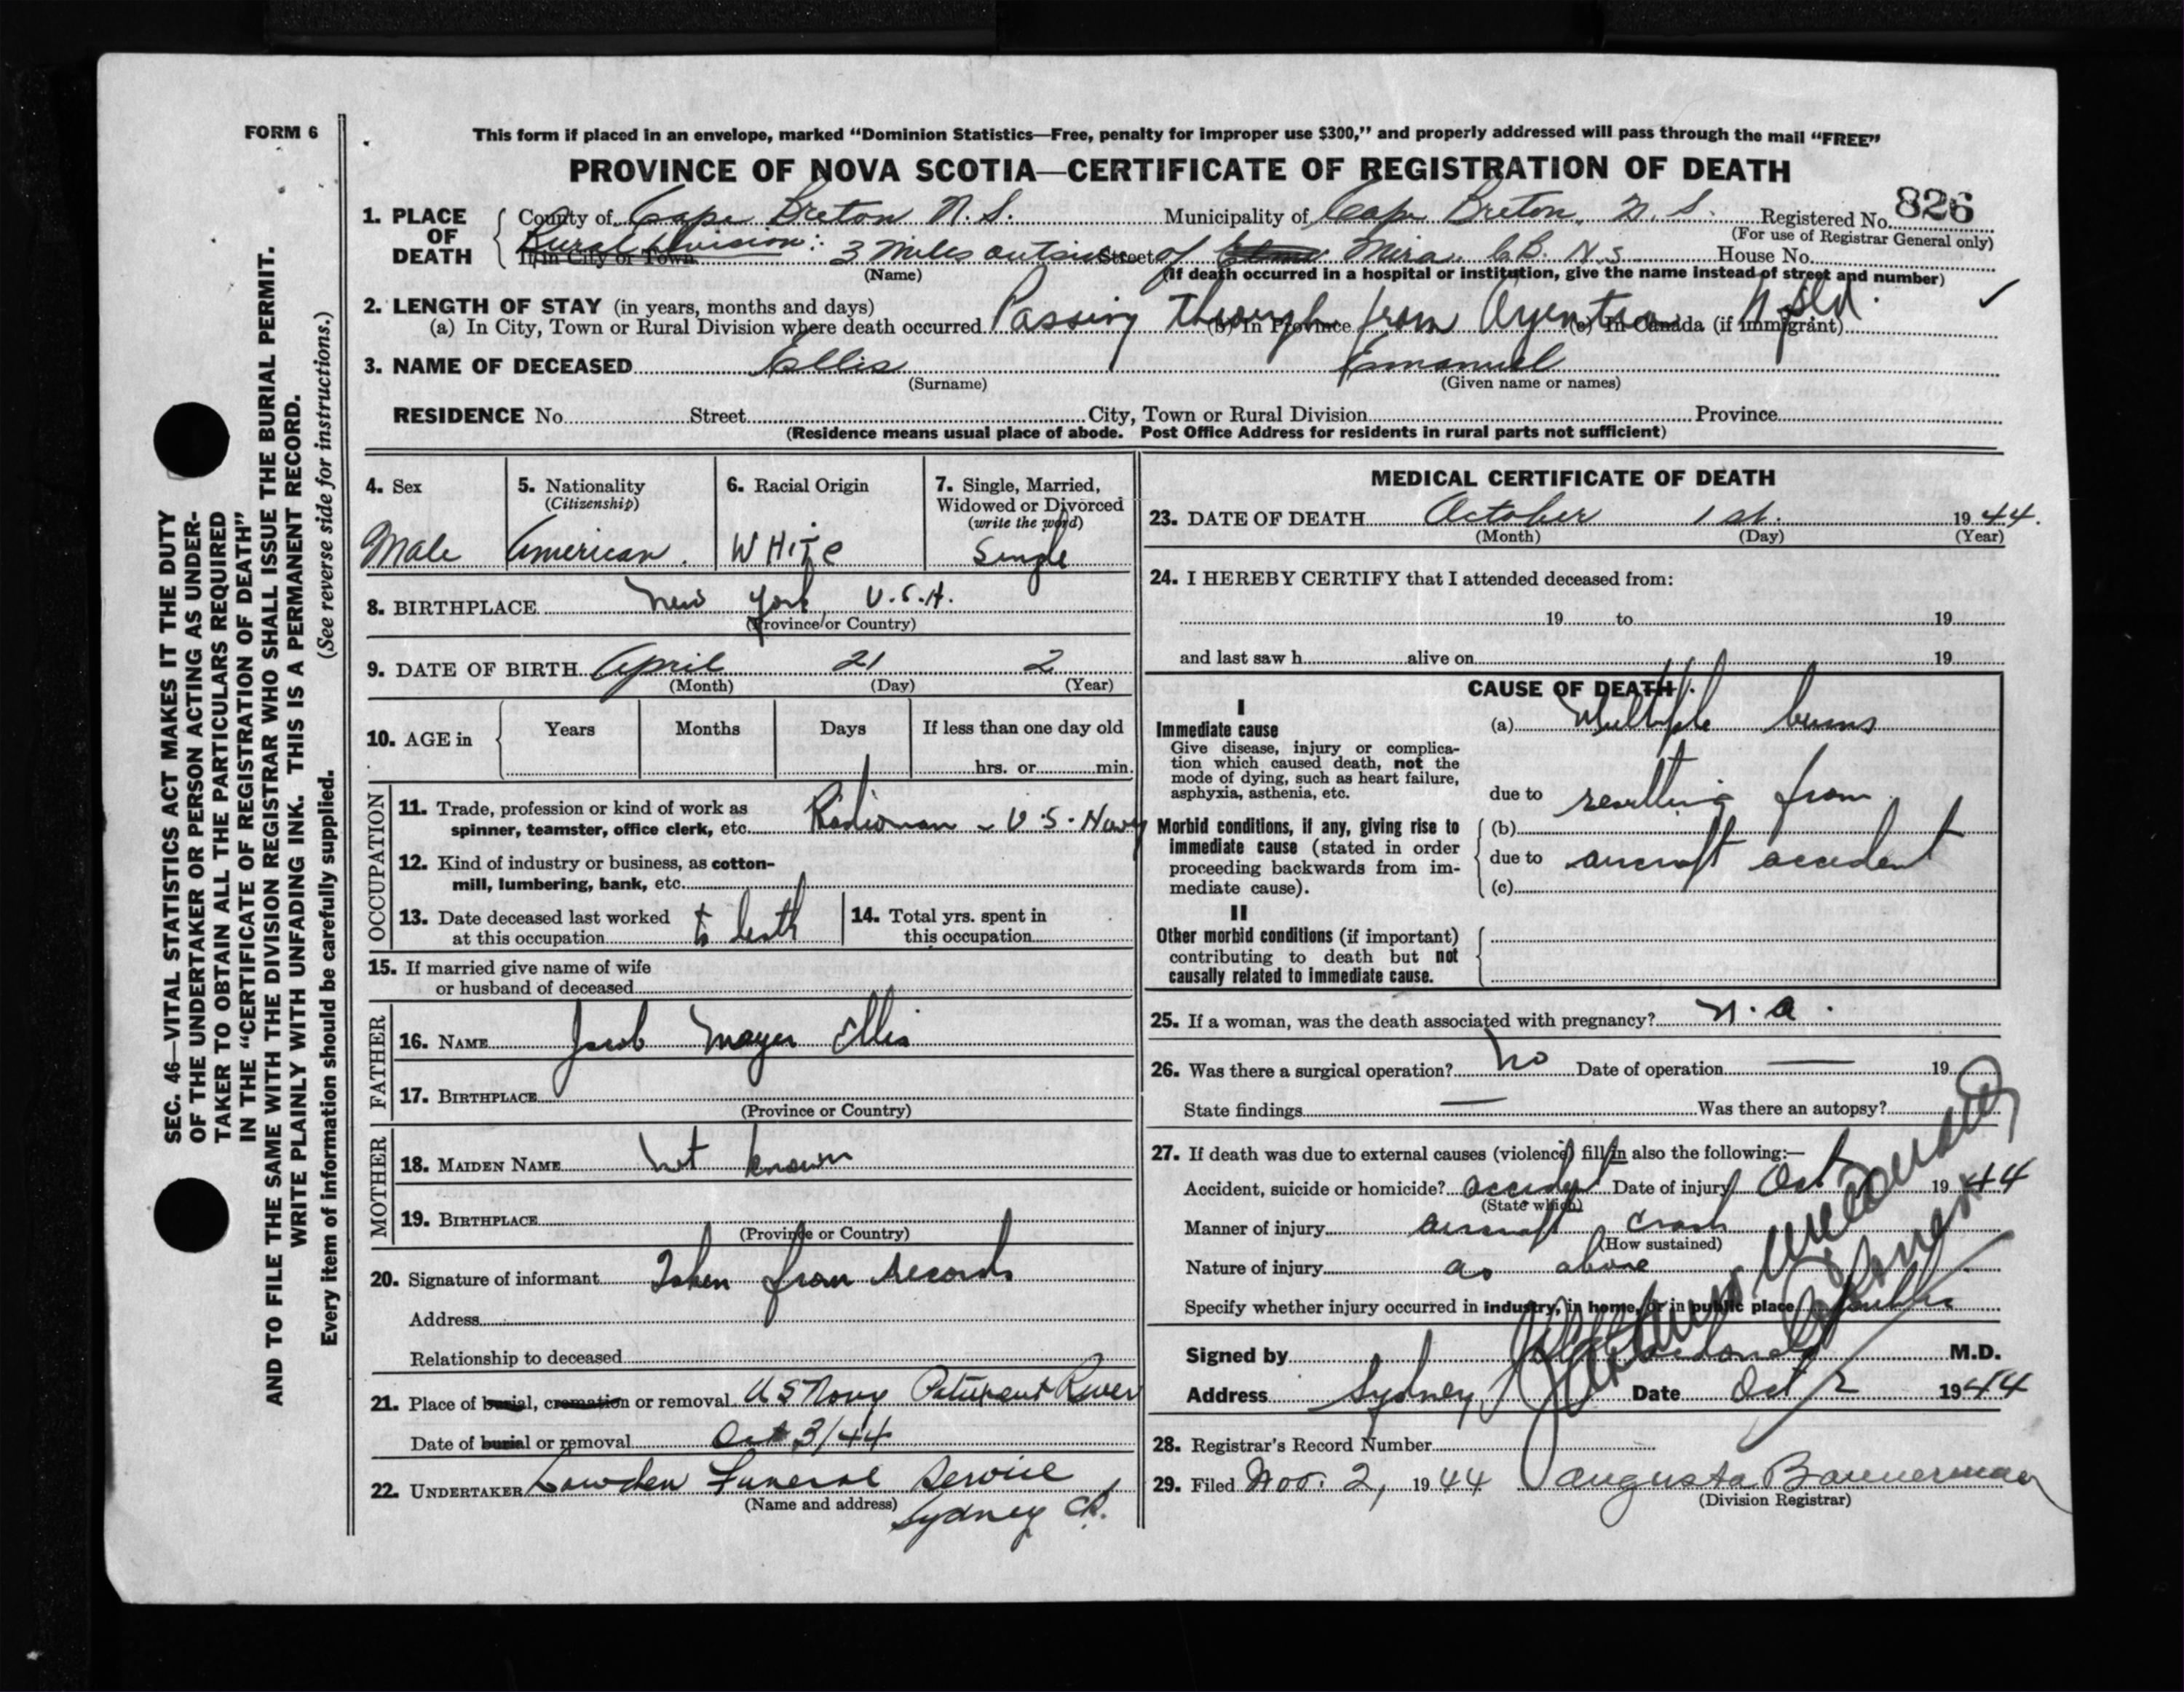 FORM 6
This form if placed in an envelope, marked "Dominion Statistics—Free, penalty for improper use $300," and properly addressed will pass through the mail "FREE"
PROVINCE OF NOVA SCOTIA—CERTIFICATE OF REGISTRATION OF DEATH
1. PLACE OF DEATH
County of Cape Breton N.S. Municipality of Cape Breton, N.S. Registered No. 826
(For use of Registrar General only)
Rural Division: 3 miles outside of Mira. C.B. N.S.
If in City or Town Street House No.
(Name) (If death occurred in a hospital or institution, give the name instead of street and number)
2. LENGTH OF STAY (in years, months and days)
(a) In City, Town or Rural Division where death occurred (b) In Province (c) In Canada (if immigrant)
Passing through from Argentia Nfld.
3. NAME OF DECEASED Ellis Emanuel
(Surname) (Given name or names)
RESIDENCE No. Street City, Town or Rural Division Province
(Residence means usual place of abode. Post Office Address for residents in rural parts not sufficient)
4. Sex
Male
5. Nationality
(Citizenship)
American.
6. Racial Origin
WHITE
7. Single, Married,
Widowed or Divorced
(write the word)
Single
8. BIRTHPLACE New York, U.S.A.
(Province or Country)
9. DATE OF BIRTH April 21 2
(Month) (Day) (Year)
10. AGE in
Years Months Days If less than one day old
hrs. or min.
OCCUPATION
11. Trade, profession or kind of work as
spinner, teamster, office clerk, etc. Radioman - U.S. Navy
12. Kind of industry or business, as cotton-
mill, lumbering, bank, etc.
13. Date deceased last worked
at this occupation to death
14. Total yrs. spent in
this occupation
15. If married give name of wife
or husband of deceased
FATHER
16. NAME Jacob Mayer Ellis
17. BIRTHPLACE
(Province or Country)
MOTHER
18. MAIDEN NAME not known
19. BIRTHPLACE
(Province or Country)
20. Signature of informant Taken from records
Address
Relationship to deceased
21. Place of burial, cremation or removal U S Navy Patuxent River
Date of burial or removal Oct 3/44
22. UNDERTAKER Lowden Funeral Service
(Name and address) Sydney CB.
MEDICAL CERTIFICATE OF DEATH
23. DATE OF DEATH October 1st. 1944.
(Month) (Day) (Year)
24. I HEREBY CERTIFY that I attended deceased from:
19 to 19
and last saw h alive on 19
CAUSE OF DEATH
I
Immediate cause
Give disease, injury or complica-
tion which caused death, not the
mode of dying, such as heart failure,
asphyxia, asthenia, etc.
(a) Multiple burns
due to resulting from
Morbid conditions, if any, giving rise to
immediate cause (stated in order
proceeding backwards from im-
mediate cause).
(b)
due to aircraft accident
(c)
II
Other morbid conditions (if important)
contributing to death but not
causally related to immediate cause.
25. If a woman, was the death associated with pregnancy? N.A.
26. Was there a surgical operation? No Date of operation — 19
State findings — Was there an autopsy?
27. If death was due to external causes (violence) fill in also the following:—
Accident, suicide or homicide? accident Date of injury Oct 1 1944
(State which)
Manner of injury aircraft crash
(How sustained)
Nature of injury as above
Specify whether injury occurred in industry, in home, or in public place public
Signed by Macdonald M.D.
Coroner
Address Sydney Date Oct 2 1944
28. Registrar's Record Number
29. Filed Nov. 2, 1944 Augusta Bannerman
(Division Registrar)
SEC. 46—VITAL STATISTICS ACT MAKES IT THE DUTY
OF THE UNDERTAKER OR PERSON ACTING AS UNDER-
TAKER TO OBTAIN ALL THE PARTICULARS REQUIRED
IN THE "CERTIFICATE OF REGISTRATION OF DEATH"
AND TO FILE THE SAME WITH THE DIVISION REGISTRAR WHO SHALL ISSUE THE BURIAL PERMIT.
WRITE PLAINLY WITH UNFADING INK. THIS IS A PERMANENT RECORD.
Every item of information should be carefully supplied. (See reverse side for instructions.)